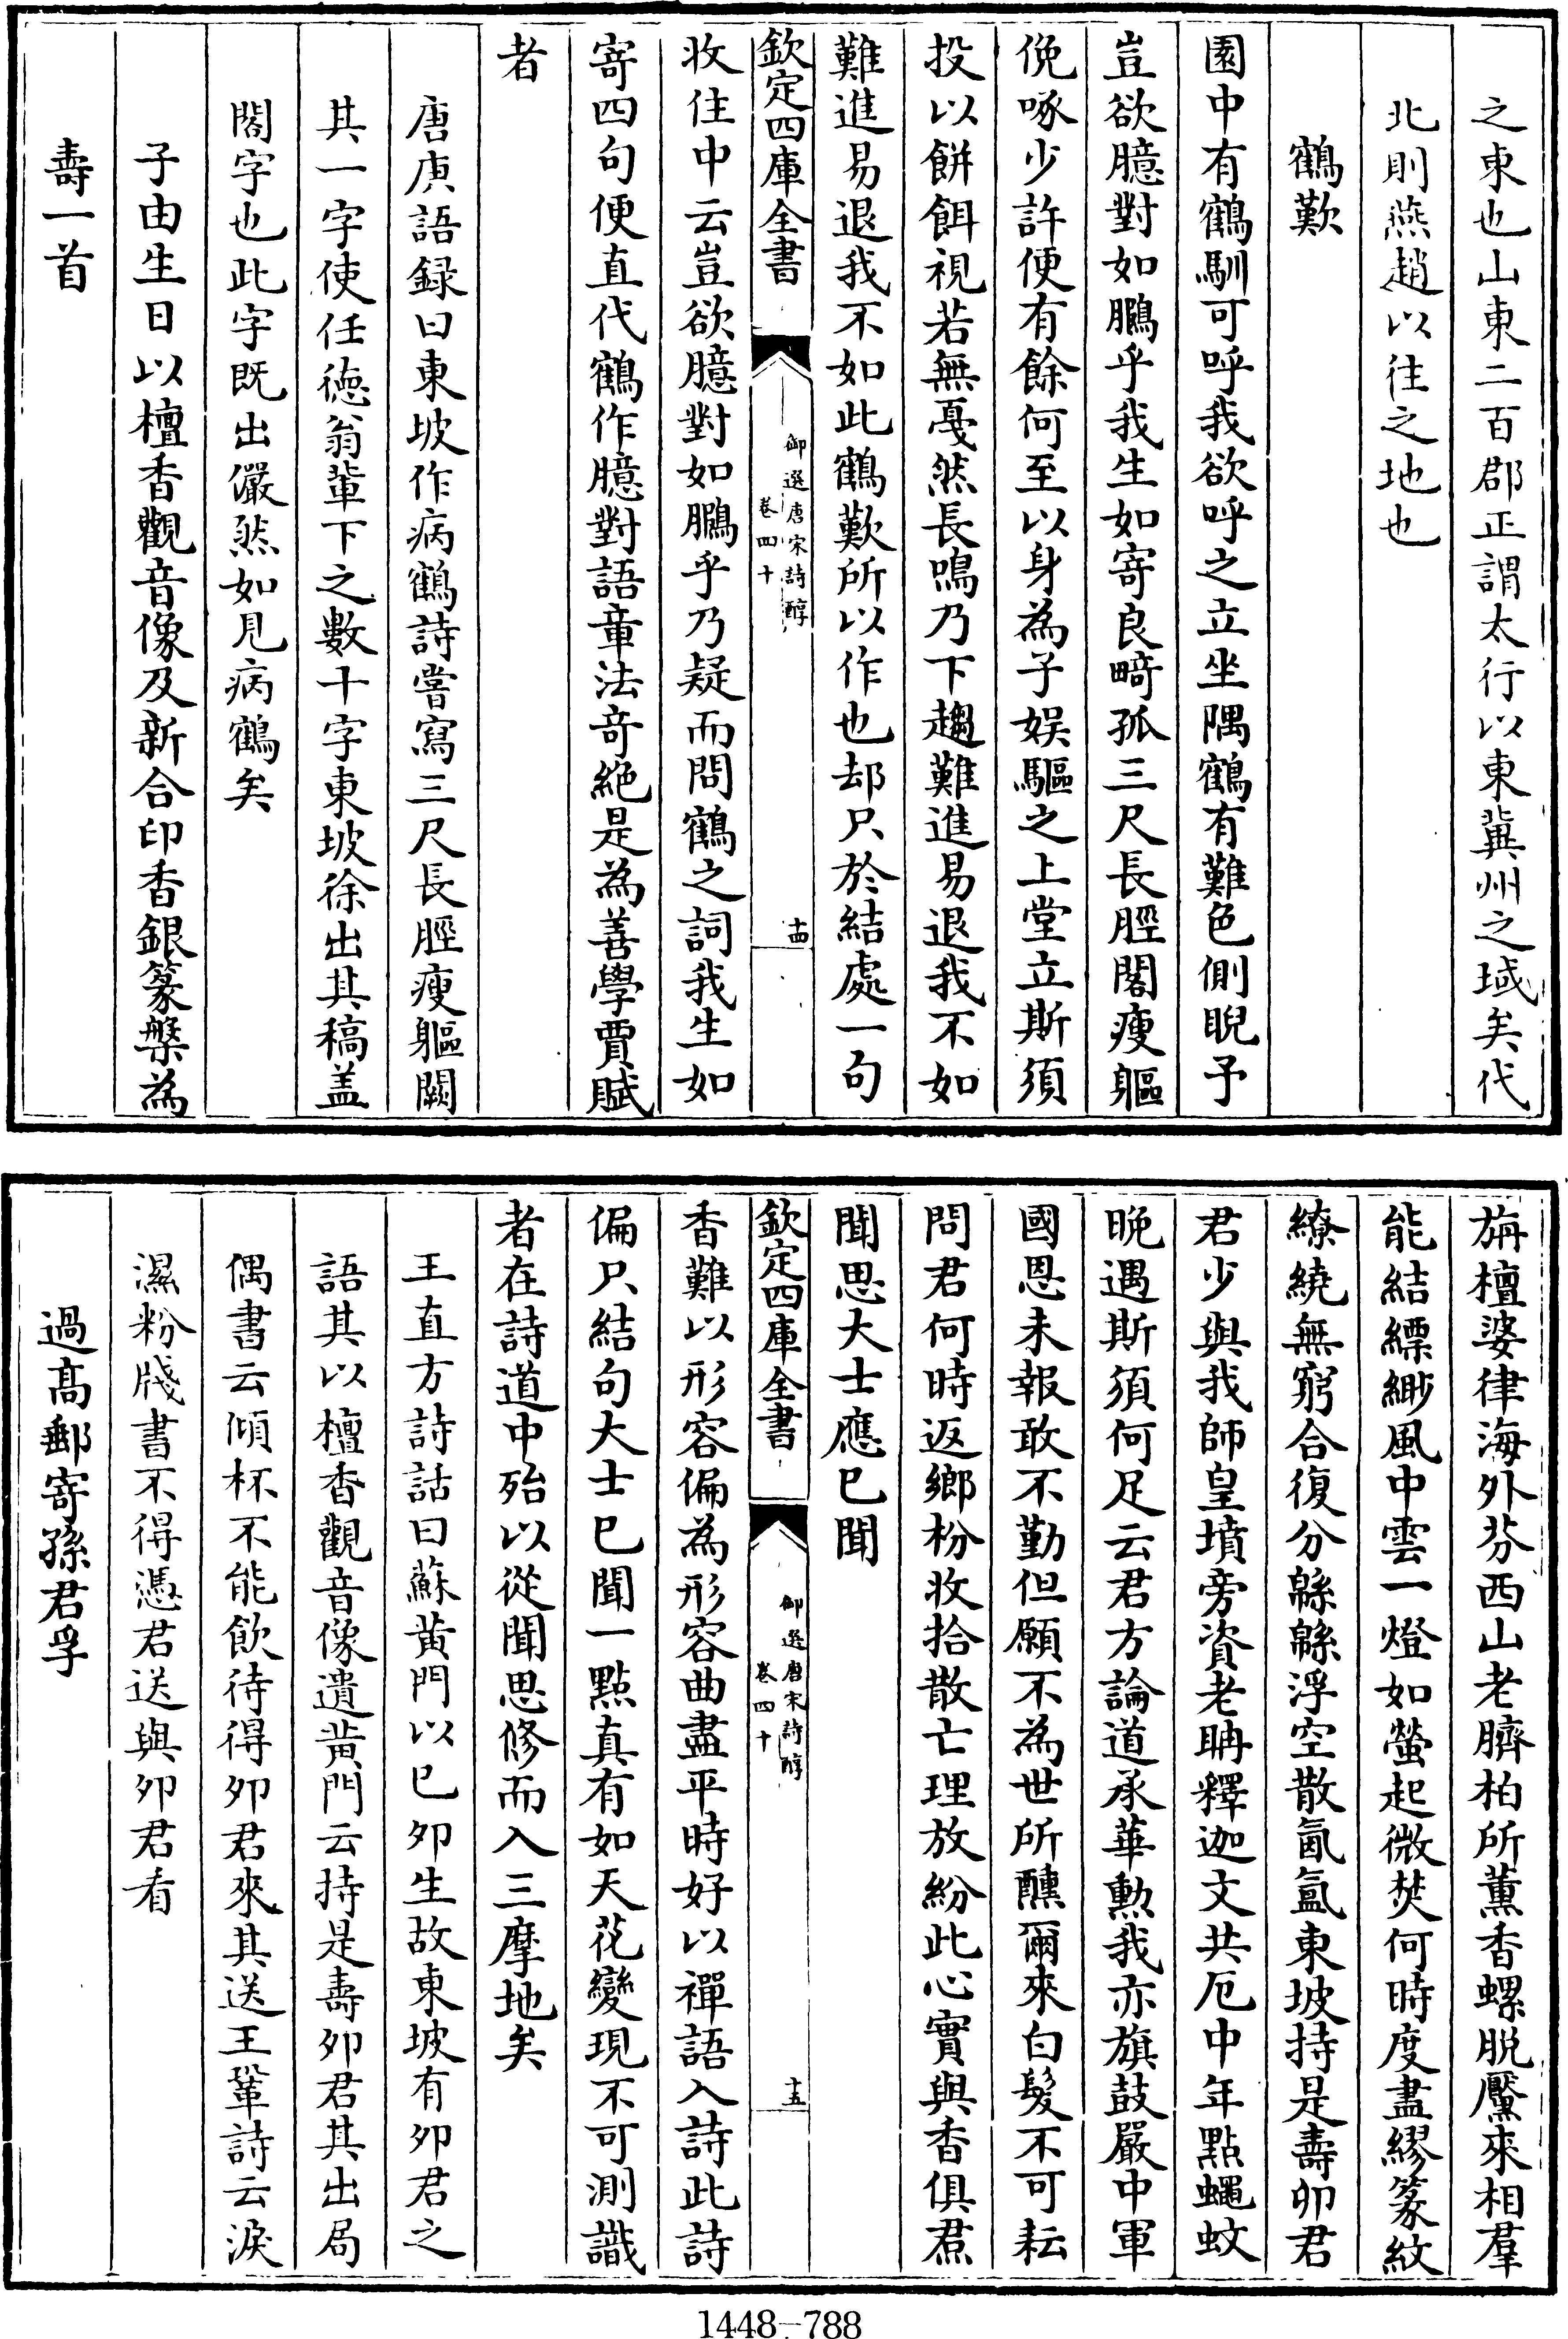 之東也山東二百郡正謂太行以東冀州之域矣代
北則燕趙以往之地也
鶴歎
園中有鶴馴可呼我欲呼之立坐隅鶴有難色側睨予
豈欲臆對如鵩乎我生如寄良畸孤三尺長脛閣瘦軀
俛啄少許便有餘何至以身為子娛驅之上堂立斯須
投以餅餌視若無戞然長鳴乃下趨難進易退我不如
難進易退我不如此鶴歎所以作也却只於結處一句
欽定四庫全書
御選唐宋詩醇
卷四十
十四
收住中云豈欲臆對如鵩乎乃疑而問鶴之詞我生如
寄四句便直代鶴作臆對語章法奇絶是為善學賈賦
者
唐庚語録曰東坡作病鶴詩嘗寫三尺長脛瘦軀闕
其一字使任德翁輩下之數十字東坡徐出其稿盖
閣字也此字既出儼然如見病鶴矣
子由生日以檀香觀音像及新合印香銀篆槃為
壽一首
旃檀婆律海外芬西山老臍柏所薰香螺脱黶來相羣
能結縹緲風中雲一燈如螢起微焚何時度盡繆篆紋
繚繞無窮合復分緜緜浮空散氤氲東坡持是壽卯君
君少與我師皇墳旁資老聃釋迦文共厄中年點蠅蚊
晩遇斯須何足云君方論道承華勲我亦旗鼓嚴中軍
國恩未報敢不勤但願不為世所醺爾來白髪不可耘
問君何時返鄉枌收拾散亡理放紛此心實與香俱焄
聞思大士應已聞
欽定四庫全書
御選唐宋詩醇
卷四十
十五
香難以形容偏為形容曲盡平時好以禪語入詩此詩
偏只結句大士已聞一點真有如天花變現不可測識
者在詩道中殆以從聞思修而入三摩地矣
王直方詩話曰蘇黄門以已夘生故東坡有夘君之
語其以檀香觀音像遺黄門云持是壽夘君其出局
偶書云傾杯不能飲待得夘君來其送王鞏詩云淚
濕粉牋書不得憑君送與夘君看
過髙郵寄孫君孚
1448-788